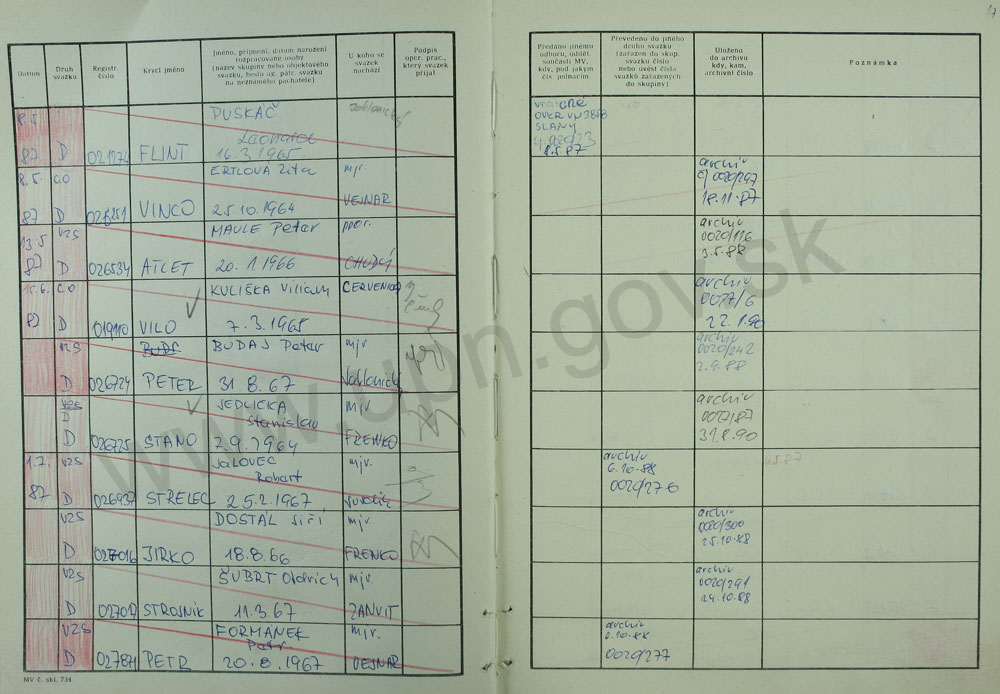 17
Datum
Druh svazku
Registr. číslo
Krycí jméno
Jméno, příjmení, datum narození
rozpracované osoby
(název skupiny nebo objektového
svazku, heslo ag. pátr. svazku
na neznámého pachatele)
U koho se
svazek
nachází
Podpis
oper. prac.,
který svazek
přijal
Předáno jinému
odboru, odděl.
součásti MV,
kdy, pod jakým
čís. jednacím
Převedeno do jiného
druhu svazku
(zařazen do skup.
svazku číslo
nebo uvést čísla
svazků zařazených
do skupiny)
Uloženo
do archivu
kdy, kam,
archivní číslo
Poznámka
87 D 021274 FLINT
PUSKÁČ
16.3.1965
SLANÝ
8.5.87
87 D VINCO
ERTLOVÁ Zita
25.10.1964
mjr.
VEJNAR
archiv
0020/297
18.11.87
13.5 VZS
87 D 026534 ATLET
MAULE Peter
20.1.1966
por.
CHUDÝ
archiv
0020/116
3.5.88
15.6. CO
87 D 019110 VILO
KULIŠKA Viliam
7.3.1965
archiv
0077/6
22.1.90
VZS
D 026724 PETER
BUDAJ Peter
31.8.67
mjr
archiv
0020/242
2.9.88
VZS
D
D 026725 STANO
JEDLIČKA
Stanislav
7.9.1964
mjr
FRENKO
archiv
0077/87
31.8.90
1.7. VZS
87 D 026937 STRELEC
JALOVEC
Robert
25.2.1967
mjr.
archiv
6.10.88
0020/276
VZS
D 027016 JIRKO
DOSTÁL Jiří
18.8.66
mjr.
FRENKO
archiv
0020/300
25.10.88
VZS
D 027017 STROJNIK
ŠUBRT Oldrich
11.3.67
mjr
ZANVIT
archiv
0020/291
24.10.88
VZS
D 027871 PETR
FORMÁNEK
Petr
20.8.1967
mjr.
VEJNAR
archiv
6.10.88
0020/277
MV č. skl. 734
www.upn.gov.sk